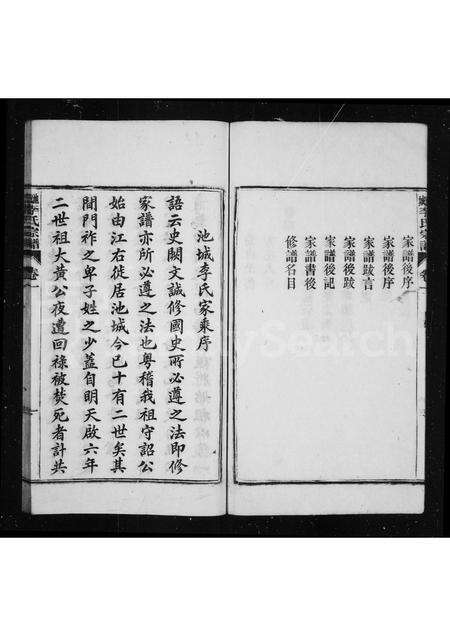 家譜後序
家譜後序
家譜跋言
家譜後跋
家譜後記
家譜書後
修譜名目
李氏宗譜
卷一
池城李氏家乘序
語云史闕文誠修國史所必遵之法即修
家譜亦所必遵之法也粵稽我祖守詔公
始由江右徙居池城今已十有二世矣其
間門祚之卑子姓之少蓋自明天啟六年
二世祖大黃公夜遭回祿被焚死者計共
李氏宗譜
卷一